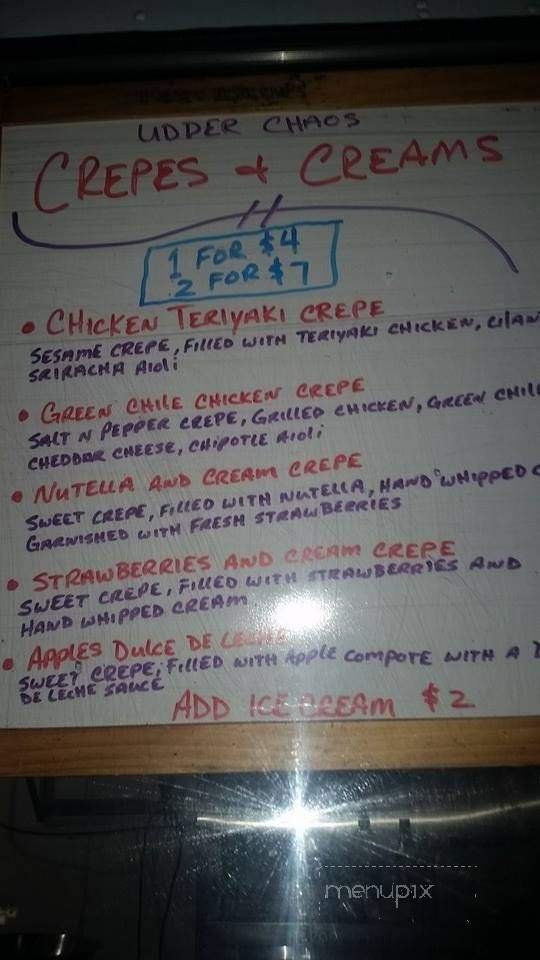 UDDER CHAOS
CREPES & CREAMS
1 FOR $4
2 FOR $7
• CHICKEN TERIYAKI CREPE
SESAME CREPE, FILLED WITH TERIYAKI CHICKEN,
SRIRACHA AIOLI
• GREEN CHILE CHICKEN CREPE
SALT N PEPPER CREPE, GRILLED CHICKEN, GREEN CHIL
CHEDDAR CHEESE, CHIPOTLE AIOLI
• NUTELLA AND CREAM CREPE
SWEET CREPE, FILLED WITH NUTELLA, HAND WHIPPED C
GARNISHED WITH FRESH STRAWBERRIES
• STRAWBERRIES AND CREAM CREPE
SWEET CREPE, FILLED WITH STRAWBERRIES AND
HAND WHIPPED CREAM
• APPLES DULCE DE LECHE
SWEET CREPE, FILLED WITH APPLE COMPOTE WITH A
DE LECHE SAUCE
ADD ICE CREAM $2
menupix